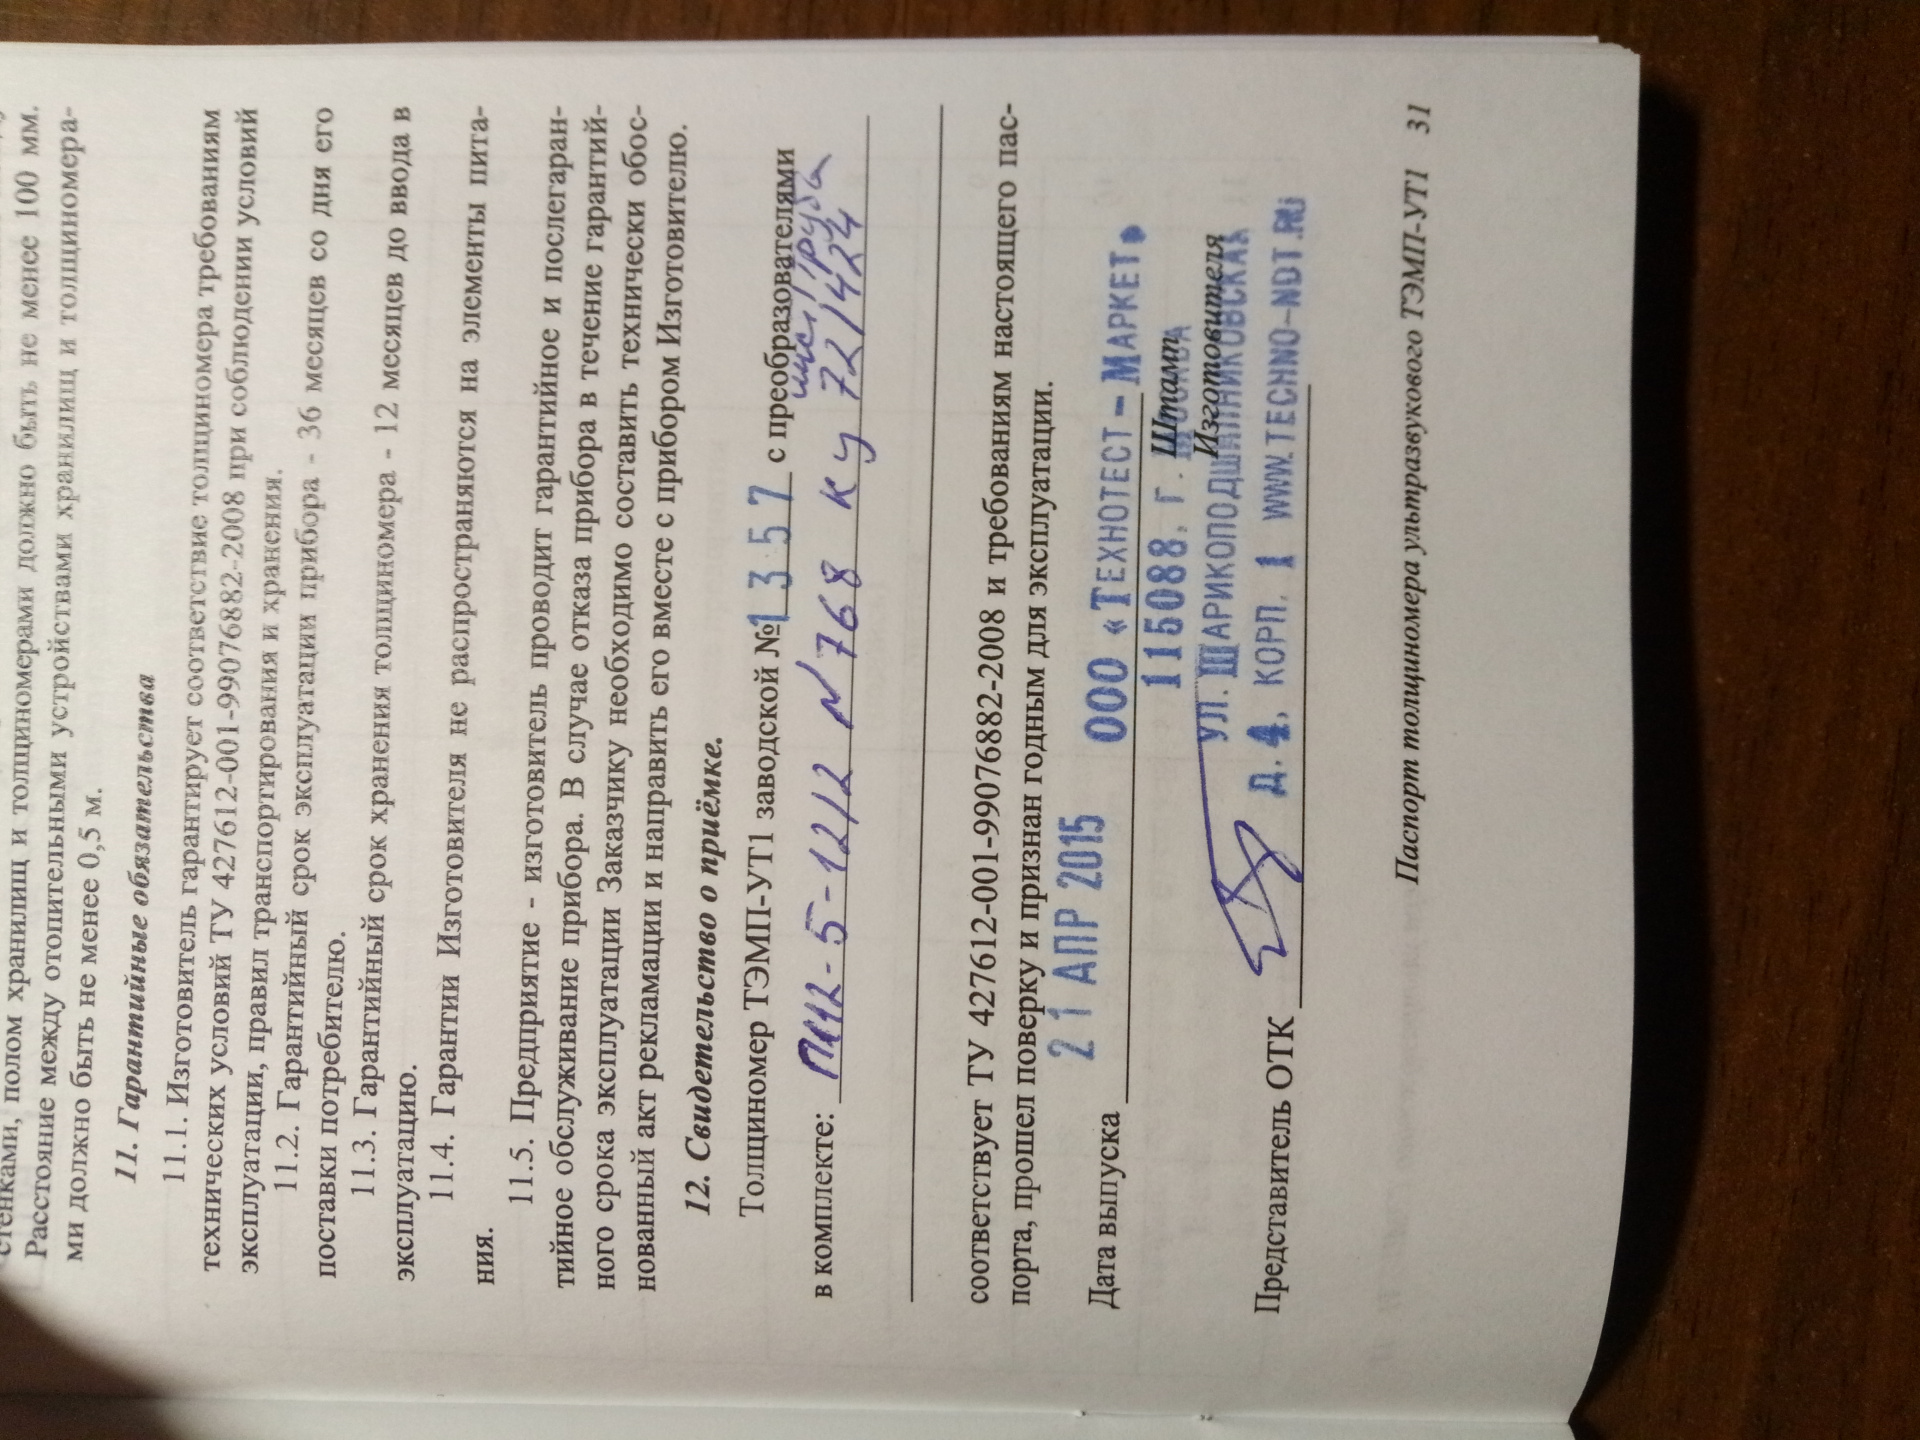 стенками, полом хранилищ и толщиномерами должно быть не менее 100 мм.
Расстояние между отопительными устройствами хранилищ и толщиномера-
ми должно быть не менее 0,5 м.
11. Гарантийные обязательства
11.1. Изготовитель гарантирует соответствие толщиномера требованиям
технических условий ТУ 427612-001-99076882-2008 при соблюдении условий
эксплуатации, правил транспортирования и хранения.
11.2. Гарантийный срок эксплуатации прибора - 36 месяцев со дня его
поставки потребителю.
11.3. Гарантийный срок хранения толщиномера - 12 месяцев до ввода в
эксплуатацию.
11.4. Гарантии Изготовителя не распространяются на элементы пита-
ния.
11.5. Предприятие - изготовитель проводит гарантийное и послегаран-
тийное обслуживание прибора. В случае отказа прибора в течение гарантий-
ного срока эксплуатации Заказчику необходимо составить технически обос-
нованный акт рекламации и направить его вместе с прибором Изготовителю.
12. Свидетельство о приёмке.
Толщиномер ТЭМП-УТ1 заводской № 1357 с преобразователями
в комплекте: П112-5-12/2 N768 Ку 72/1424
соответствует ТУ 427612-001-99076882-2008 и требованиям настоящего пас-
порта, прошел поверку и признан годным для эксплуатации.
21 АПР 2015 ООО «ТЕХНОТЕСТ-МАРКЕТ»
Дата выпуска
115088, Г. Штамп
Изготовителя
УЛ. ШАРИКОПОДШИПНИКОВСКАЯ
Д. 4, КОРП. 1 WWW.TECHNO-NDT.RU
Представитель ОТК
Паспорт толщиномера ультразвукового ТЭМП-УТ1 31